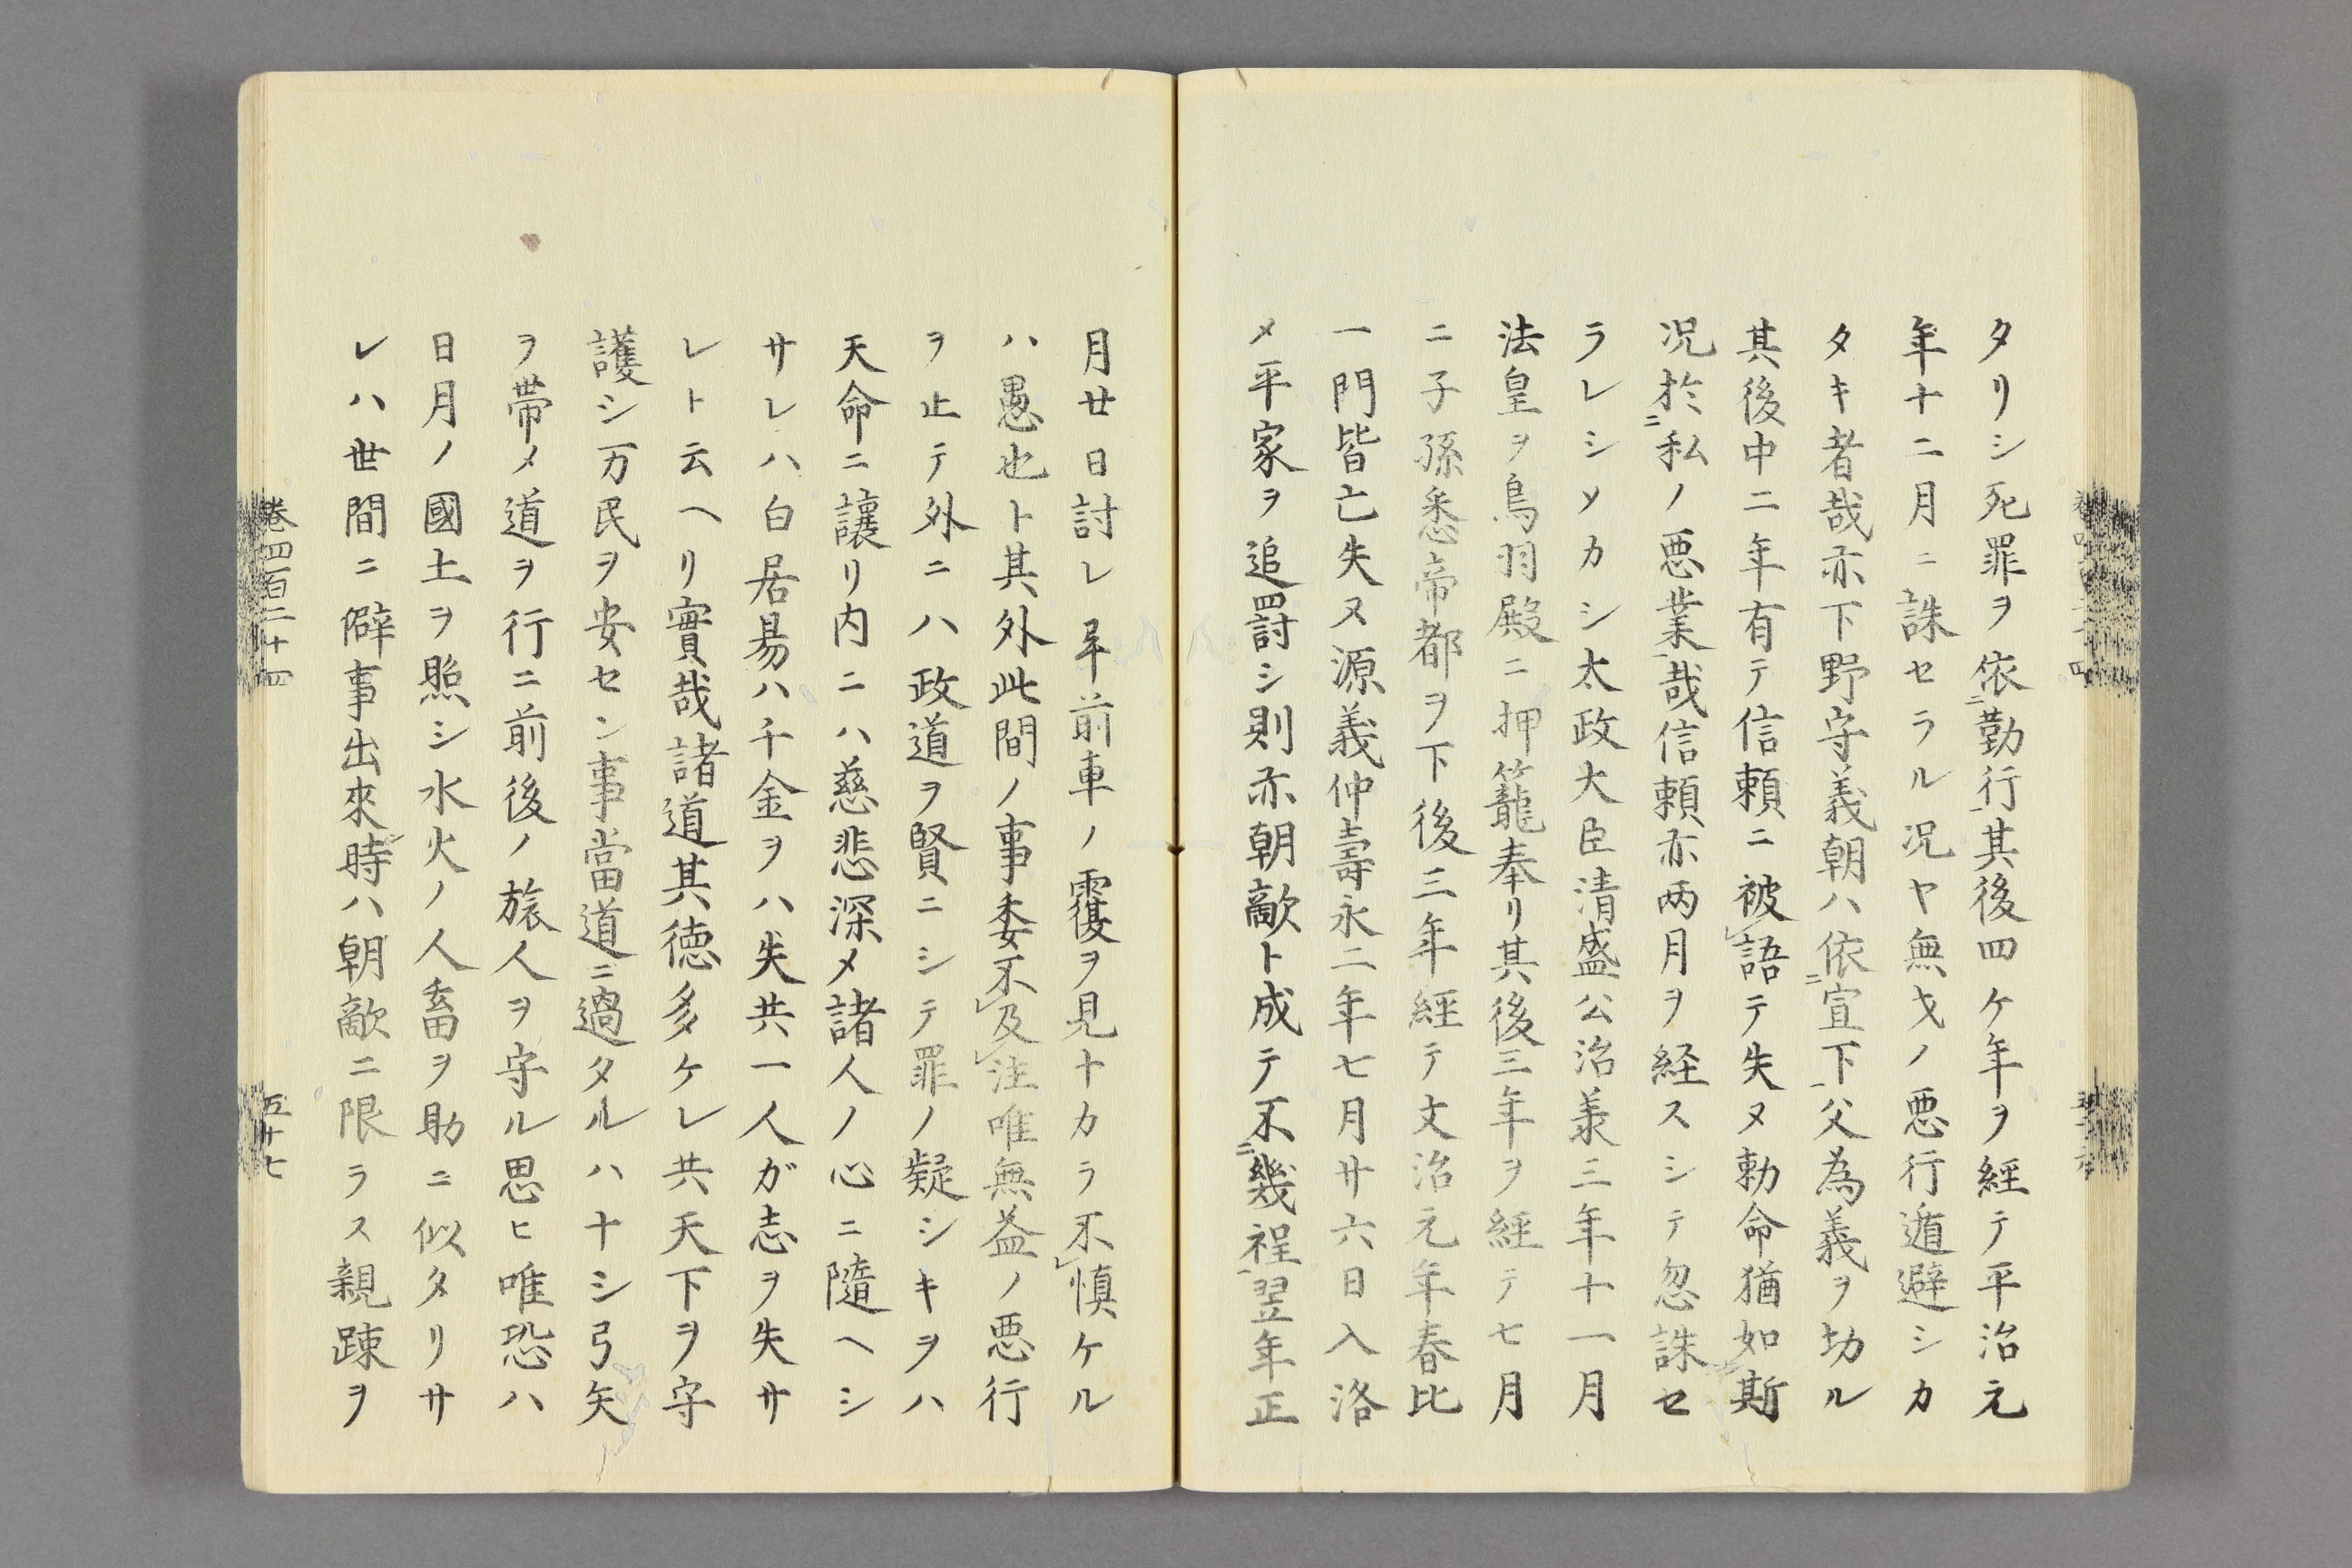 タリシ死罪ヲ依ニ勤行一其後四ケ年ヲ経テ平治元
年十二月ニ誅セラル况ヤ無双ノ悪行遁避シカ
タキ者哉亦下野守義朝ハ依ニ宣下一父為義ヲ切ル
其後中二年有テ信頼ニ被レ語テ失ヌ勅命猶如斯
况於ニ私ノ悪業一哉信頼亦両月ヲ経スシテ忽誅セ
ラレシソカシ太政大臣清盛公治承三年十一月
法皇ヲ鳥羽殿ニ押籠奉リ其後三年ヲ經テ七月
ニ子孫悉帝都ヲ下後三年經テ文治元年春比
一門皆亡失ヌ源義仲壽永二年七月廿六日入洛
メ平家ヲ追罸シ則亦朝敵ト成テ不ニ幾程一翌年正
月廿日討レ畢前車ノ覆ヲ見ナカラ不レ慎ケル
ハ愚也ト其外此間ノ事委不レ及レ注唯無益ノ悪行
ヲ止テ外ニハ政道ヲ賢ニシテ罪ノ疑シキヲハ
天命ニ讓リ内ニハ慈悲深メ諸人ノ心ニ隨ヘシ
サレハ白居易ハ千金ヲハ失共一人ガ志ヲ失サ
レト云ヘリ實哉諸道其徳多ケレ共天下ヲ守
護シ万民ヲ安セン事當道ニ過タルハナシ弓矢
ヲ帯メ道ヲ行ニ前後ノ旅人ヲ守ル思ヒ唯恐ハ
日月ノ國土ヲ照シ水火ノ人畜ヲ助ニ似タリサ
レハ世間ニ僻事出來時ハ朝敵ニ限ラス親踈ヲ
巻四百二十四
五十七